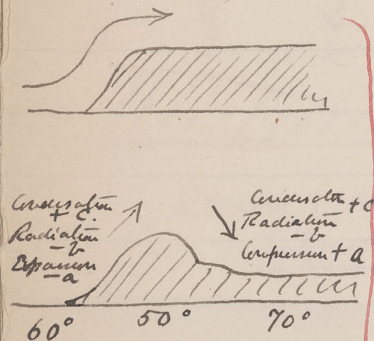 Condensation
+ c.
Radiation
- b
Expansion
- a
Condensation + c
Radiation
- b
Compression + a
60° 50° 70°